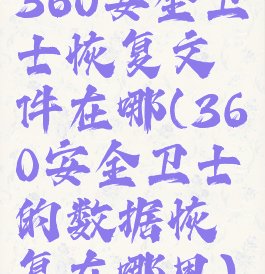 360安全卫
士恢复文
件在哪(36
0安全卫士
的数据恢
复在哪里)